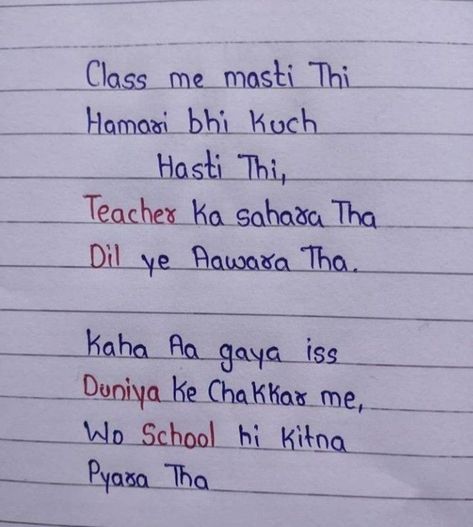 Class me masti Thi
Hamari bhi kuch
Hasti Thi,
Teacher ka sahara Tha
Dil ye Aawara Tha.
Kaha Aa gaya iss
Duniya ke Chakkar me,
Wo School hi kitna
Pyara Tha